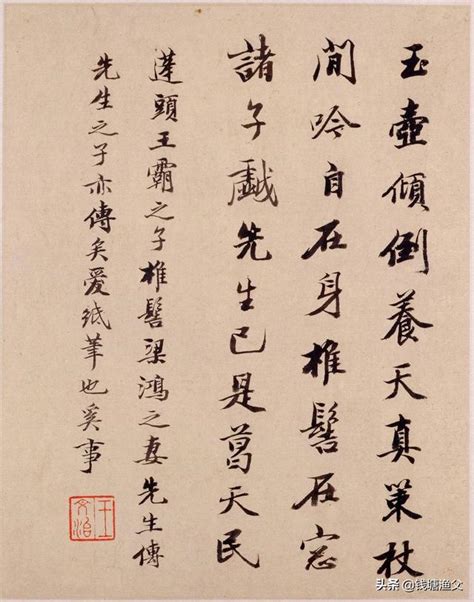 玉壺傾倒養天真策杖
閒吟自在身椎髻在窓
諸子戲先生已是葛天民
蓬頭王霸之子椎髻梁鴻之妻先生傳
先生之子亦傳矣愛紙筆也奚事
王文治
头条 @钱塘渔父